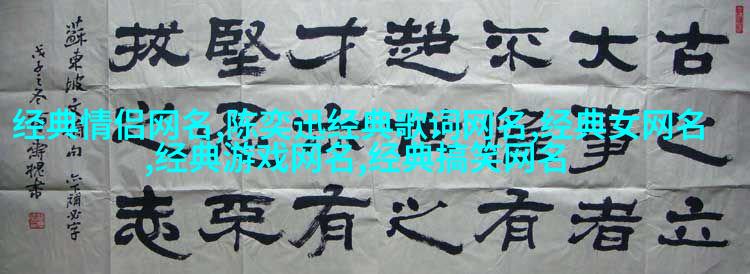 古之立
大事者
不唯有
超世之
才亦有
堅忍不
拔之志
蘇東坡文摘句 亦下補必字
戊子之冬
经典情侣网名,陈奕迅经典歌词网名,经典女网名
,经典游戏网名,经典搞笑网名